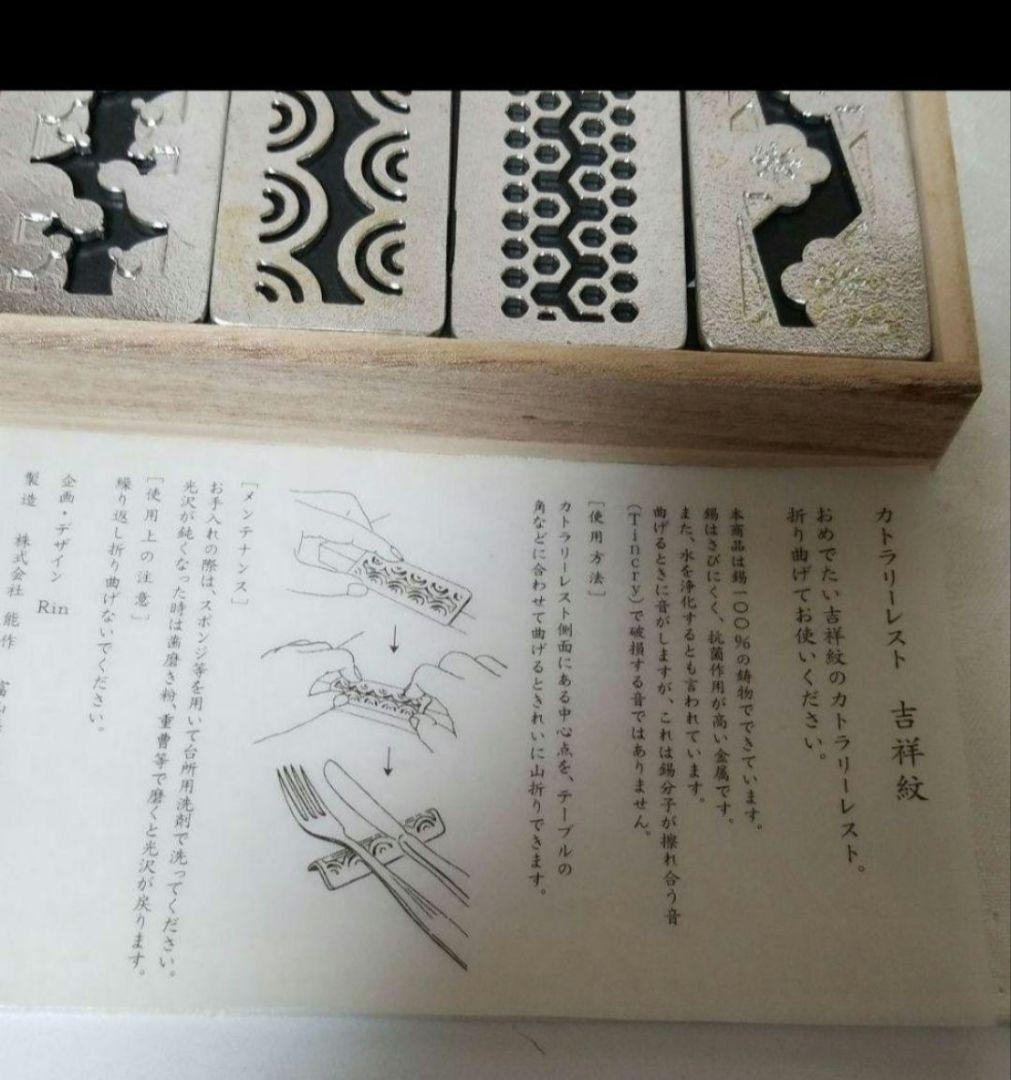 カトラリーレスト 吉祥紋
おめでたい吉祥紋のカトラリーレスト。
折り曲げてお使いください。
本商品は錫一〇〇％の鋳物でできています。
錫はさびにくく、抗菌作用が高い金属です。
また、水を浄化するとも言われています。
曲げるときに音がしますが、これは錫分子が擦れ合う音
(Tincry)で破損する音ではありません。
[使用方法]
カトラリーレスト側面にある中心点を、テーブルの
角などに合わせて曲げるときれいに山折りできます。
[メンテナンス]
お手入れの際は、スポンジ等を用いて台所用洗剤で洗ってください。
光沢が鈍くなった時は歯磨き粉、重曹等で磨くと光沢が戻ります。
[使用上の注意]
繰り返し折り曲げないでください。
企画・デザイン Rin
製造 株式会社 能作